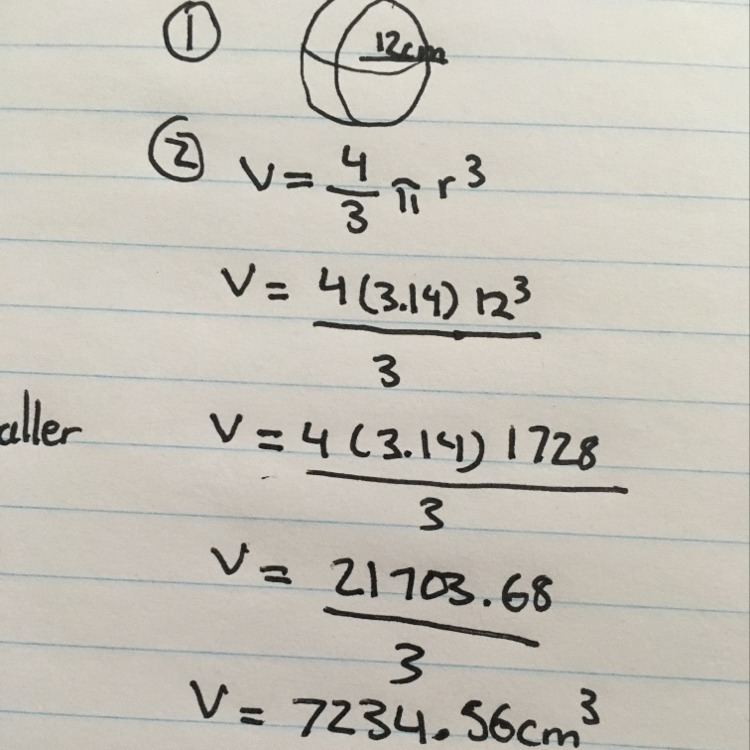 ① 12cm
② V = 4/3 π r³
V = 4(3.14) 12³ / 3
aller
V = 4(3.14) 1728 / 3
V = 21703.68 / 3
V = 7234.56cm³